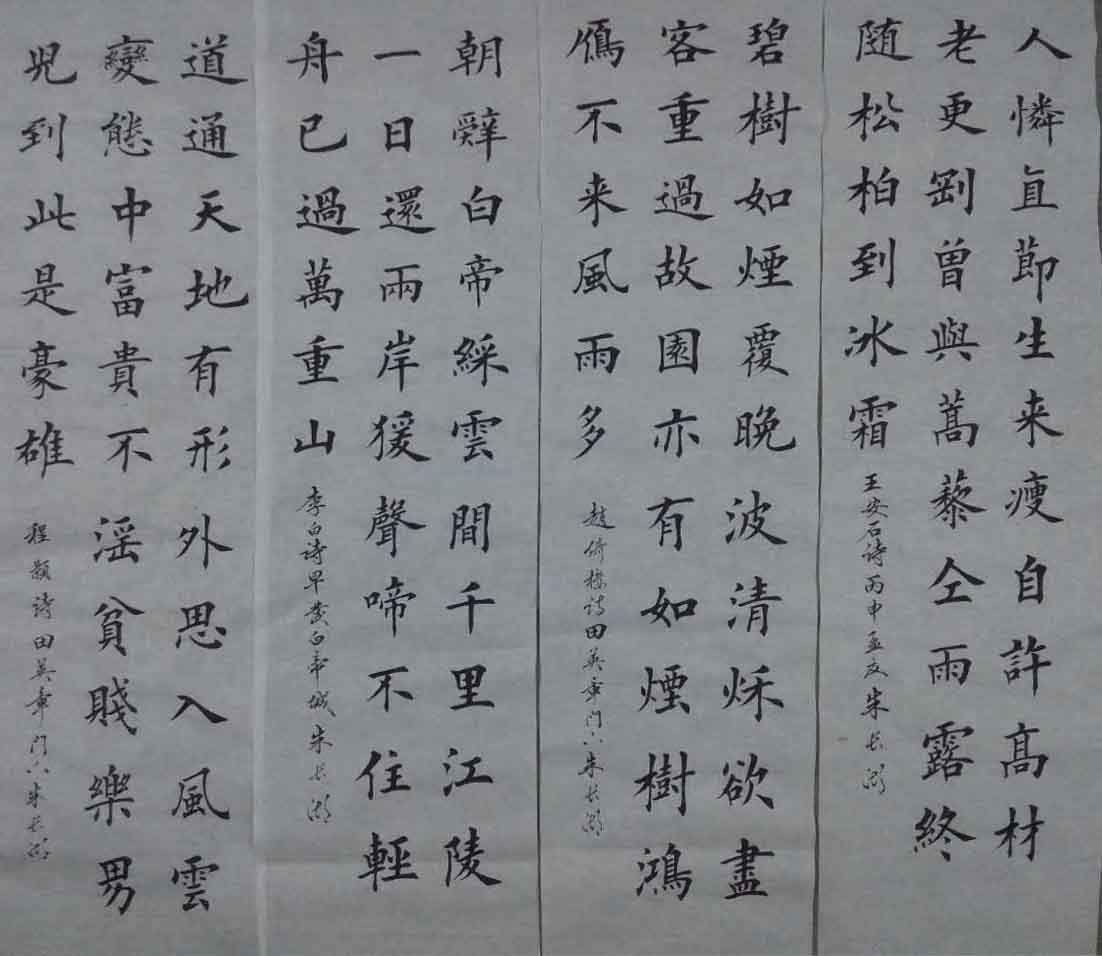 人憐直節生来瘦自許高材
老更剛曾與蒿藜仝雨露終
随松柏到冰霜
王安石诗丙申孟夏朱长湖
碧樹如煙覆晚波清秋欲盡
客重過故園亦有如煙樹鴻
鴈不来風雨多
赵倚楼诗田英章门人朱长湖
朝辭白帝綵雲間千里江陵
一日還兩岸猨聲啼不住輕
舟已過萬重山
李白诗早發白帝城朱长湖
道通天地有形外思入風雲
變態中富貴不淫貧賤樂男
兒到此是豪雄
程颢诗田英章门人朱长湖